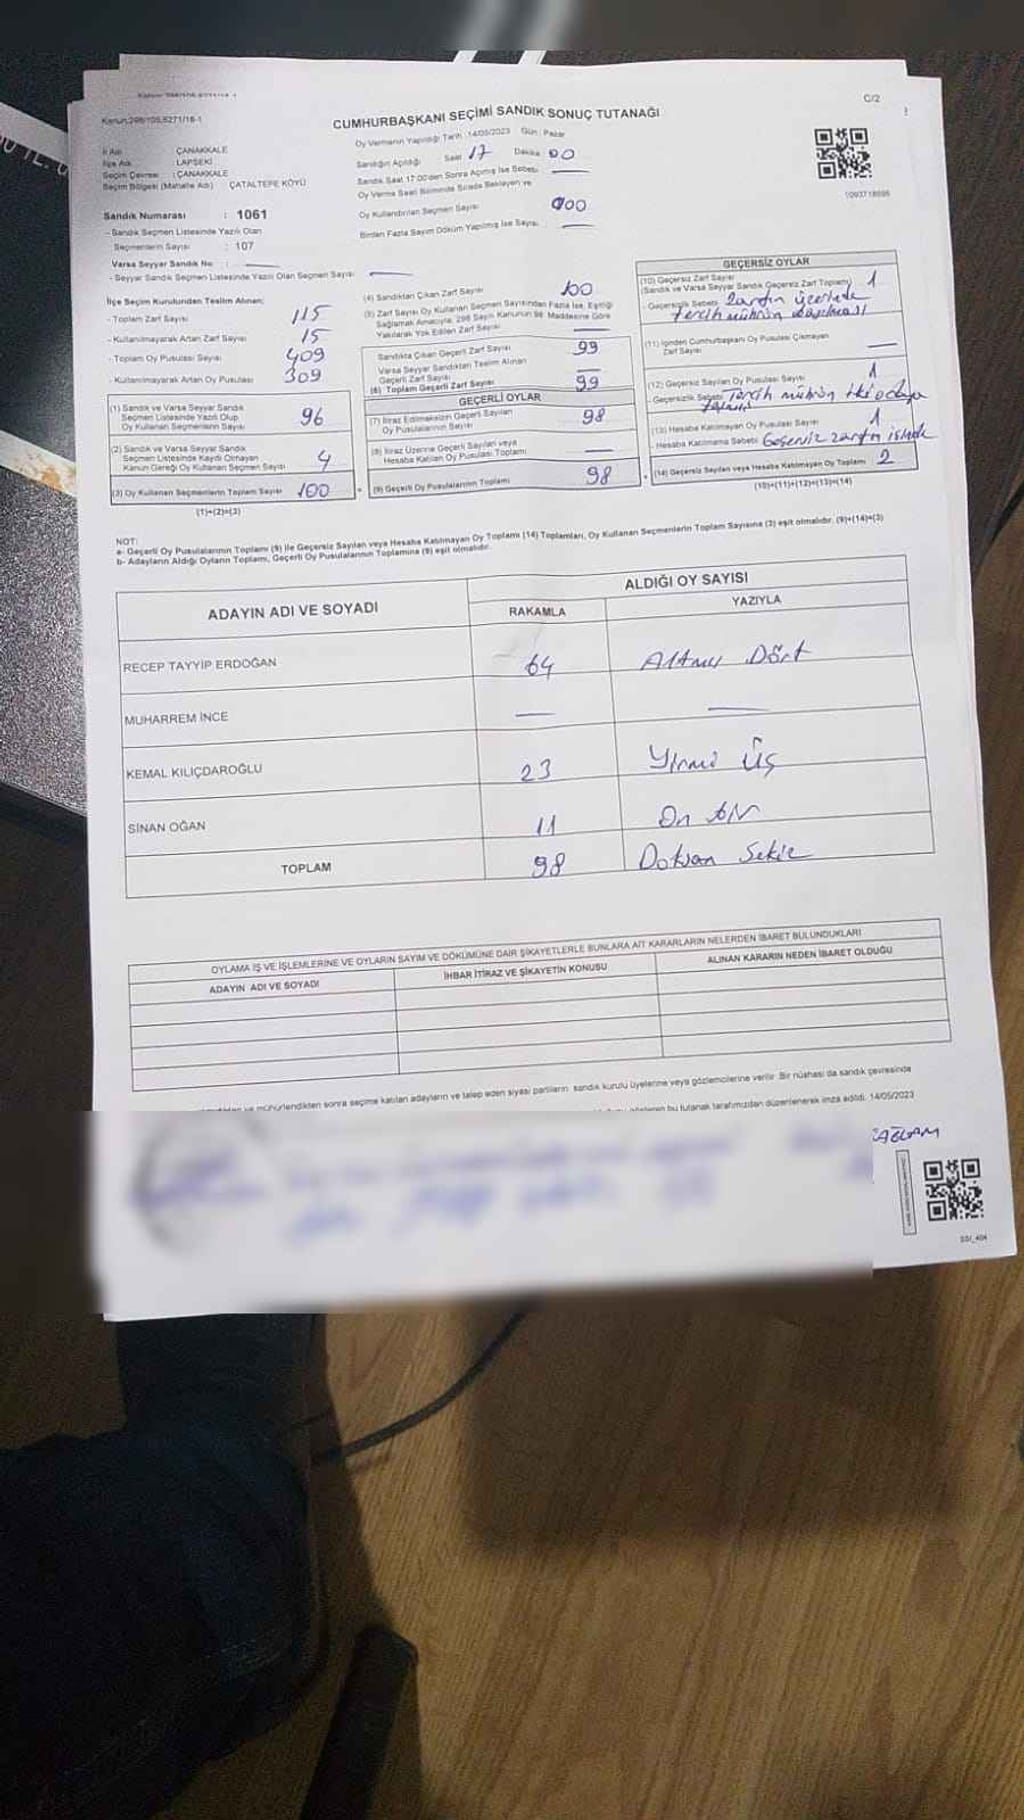 Kanun:298/105,6271/16-1
C/2
CUMHURBAŞKANI SEÇİMİ SANDIK SONUÇ TUTANAĞI
İl Adı : ÇANAKKALE
İlçe Adı : LAPSEKİ
Seçim Çevresi : ÇANAKKALE
Seçim Bölgesi (Mahalle Adı) ÇATALTEPE KÖYÜ
Sandık Numarası : 1061
- Sandık Seçmen Listesinde Yazılı Olan
Seçmenlerin Sayısı : 107
Varsa Seyyar Sandık No : —
- Seyyar Sandık Seçmen Listesinde Yazılı Olan Seçmen Sayısı —
Oy Vermenin Yapıldığı Tarih : 14/05/2023 Gün : Pazar
Sandığın Açıldığı Saat 17 Dakika 00
Sandık Saat 17:00'den Sonra Açılmış İse Sebebi —
Oy Verme Saati Bitiminde Sırada Bekleyen ve
Oy Kullandırılan Seçmen Sayısı 000
Birden Fazla Sayım Döküm Yapılmış İse Sayısı —
1093718695
İlçe Seçim Kurulundan Teslim Alınan;
- Toplam Zarf Sayısı 115
- Kullanılmayarak Artan Zarf Sayısı 15
- Toplam Oy Pusulası Sayısı 409
- Kullanılmayarak Artan Oy Pusulası 309
(1) Sandık ve Varsa Seyyar Sandık
Seçmen Listesinde Yazılı Olup
Oy Kullanan Seçmenlerin Sayısı 96
(2) Sandık ve Varsa Seyyar Sandık
Seçmen Listesinde Kaydı Olmayan
Kanun Gereği Oy Kullanan Seçmen Sayısı 4
(3) Oy Kullanan Seçmenlerin Toplam Sayısı 100
(1)+(2)=(3)
(4) Sandıktan Çıkan Zarf Sayısı 100
(5) Zarf Sayısı Oy Kullanan Seçmen Sayısından Fazla İse, Eşitliği
Sağlamak Amacıyla, 298 Sayılı Kanunun 98. Maddesine Göre
Yakılarak Yok Edilen Zarf Sayısı —
Sandıkta Çıkan Geçerli Zarf Sayısı 99
Varsa Seyyar Sandıktan Teslim Alınan
Geçerli Zarf Sayısı —
(6) Toplam Geçerli Zarf Sayısı 99
GEÇERLİ OYLAR
(7) İtiraz Edilmeksizin Geçerli Sayılan
Oy Pusulalarının Sayısı 98
(8) İtiraz Üzerine Geçerli Sayılan veya
Hesaba Katılan Oy Pusulası Toplamı —
(9) Geçerli Oy Pusulalarının Toplamı 98
GEÇERSİZ OYLAR
(10) Geçersiz Zarf Sayısı
(Sandık ve Varsa Seyyar Sandık Geçersiz Zarf Toplamı) 1
- Geçersizlik Sebebi Zarfın üzerinde
tercih mührün basılması
(11) İçinden Cumhurbaşkanı Oy Pusulası Çıkmayan
Zarf Sayısı —
(12) Geçersiz Sayılan Oy Pusulası Sayısı 1
- Geçersizlik Sebebi Tercih mührün iki adaya
(13) Hesaba Katılmayan Oy Pusulası Sayısı 1
- Hesaba Katılmama Sebebi Geçersiz zarfın
(14) Geçersiz Sayılan veya Hesaba Katılmayan Oy Toplamı 2
(10)+(11)+(12)+(13)=(14)
NOT:
a- Geçerli Oy Pusulalarının Toplamı (9) ile Geçersiz Sayılan veya Hesaba Katılmayan Oy Toplamı (14) Toplamları, Oy Kullanan Seçmenlerin Toplam Sayısına (3) eşit olmalıdır. (9)+(14)=(3)
b- Adayların Aldığı Oyların Toplamı, Geçerli Oy Pusulalarının Toplamına (9) eşit olmalıdır.
ADAYIN ADI VE SOYADI
ALDIĞI OY SAYISI
RAKAMLA YAZIYLA
RECEP TAYYİP ERDOĞAN 64 Altmış Dört
MUHARREM İNCE — —
KEMAL KILIÇDAROĞLU 23 Yirmi Üç
SİNAN OĞAN 11 On bir
TOPLAM 98 Doksan Sekiz
OYLAMA İŞ VE İŞLEMLERİNE VE OYLARIN SAYIM VE DÖKÜMÜNE DAİR ŞİKAYETLERLE BUNLARA AİT KARARLARIN NELERDEN İBARET BULUNDUKLARI
ADAYIN ADI VE SOYADI İHBAR İTİRAZ VE ŞİKAYETİN KONUSU ALINAN KARARIN NEDEN İBARET OLDUĞU
ve mühürlendikten sonra seçime katılan adayların ve talep eden siyasi partilerin sandık kurulu üyelerine veya gözlemcilerine verilir. Bir nüshası da sandık çevresinde
bu tutanak tarafımızdan düzenlenerek imza edildi. 14/05/2023